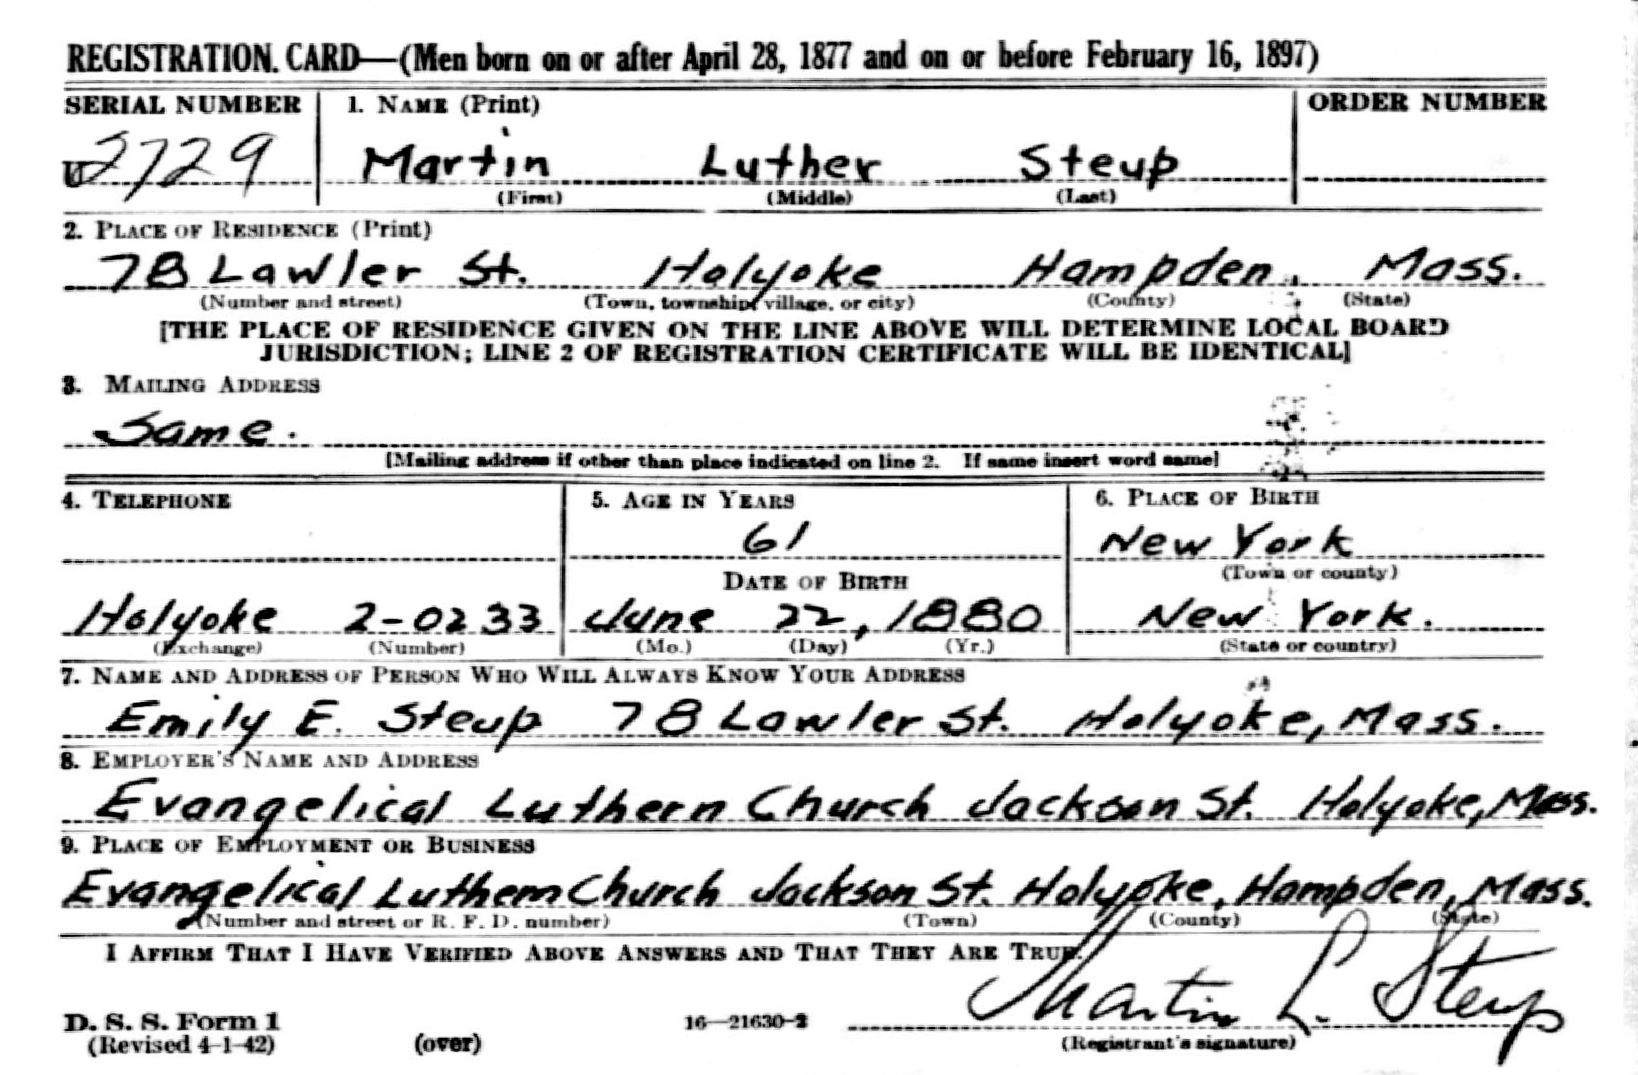 REGISTRATION CARD—(Men born on or after April 28, 1877 and on or before February 16, 1897)
SERIAL NUMBER 1. NAME (Print) ORDER NUMBER
U2729 Martin Luther Steup
(First) (Middle) (Last)
2. PLACE OF RESIDENCE (Print)
78 Lawler St. Holyoke Hampden, Mass.
(Number and street) (Town, township, village, or city) (County) (State)
[THE PLACE OF RESIDENCE GIVEN ON THE LINE ABOVE WILL DETERMINE LOCAL BOARD
JURISDICTION; LINE 2 OF REGISTRATION CERTIFICATE WILL BE IDENTICAL]
3. MAILING ADDRESS
Same.
[Mailing address if other than place indicated on line 2. If same insert word same]
4. TELEPHONE 5. AGE IN YEARS 6. PLACE OF BIRTH
61 New York
DATE OF BIRTH (Town or county)
Holyoke 2-0233 June 22, 1880 New York.
(Exchange) (Number) (Mo.) (Day) (Yr.) (State or country)
7. NAME AND ADDRESS OF PERSON WHO WILL ALWAYS KNOW YOUR ADDRESS
Emily E. Steup 78 Lawler St. Holyoke, Mass.
8. EMPLOYER'S NAME AND ADDRESS
Evangelical Luthern Church Jackson St. Holyoke, Mass.
9. PLACE OF EMPLOYMENT OR BUSINESS
Evangelical Luthern Church Jackson St. Holyoke, Hampden, Mass.
(Number and street or R. F. D. number) (Town) (County) (State)
I AFFIRM THAT I HAVE VERIFIED ABOVE ANSWERS AND THAT THEY ARE TRUE.
Martin L. Steup
D. S. S. Form 1 16—21630-2
(Revised 4-1-42) (over) (Registrant's signature)